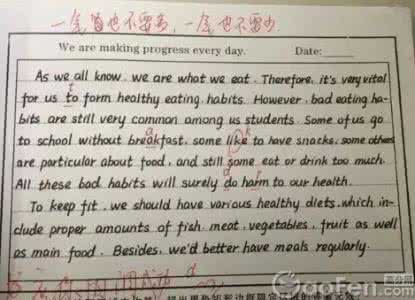 We are making progress every day. Date:
As we all know, we are what we eat. Therefore, it's very vital
for us to form healthy eating habits. However, bad eating ha-
bits are still very common among us students. Some of us go
to school without breakfast, some like to have snacks, some others
are particular about food, and still some eat or drink too much.
All these bad habits will surely do harm to our health.
To keep fit, we should have various healthy diets, which in-
clude proper amounts of fish, meat, vegetables, fruit as well
as main food. Besides, we'd better have meals regularly.
GaoFen.com